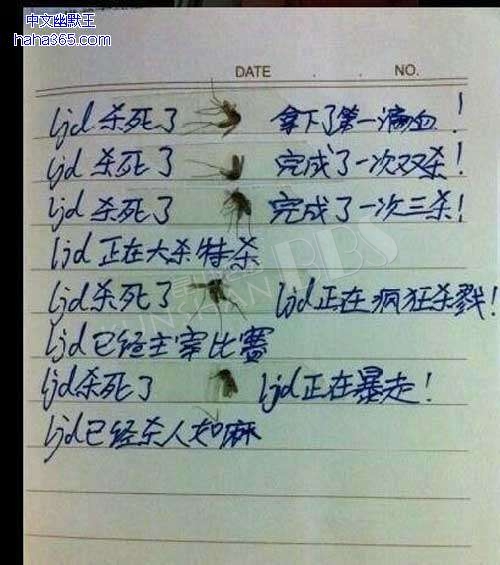 中文幽默王
haha365.com
DATE . . NO.
ljd 杀死了 拿下了第一滴血!
ljd 杀死了 完成了一次双杀!
ljd 杀死了 完成了一次三杀!
ljd 正在大杀特杀
ljd 杀死了 ljd 正在疯狂杀戮!
ljd 已经主宰比赛
ljd 杀死了 ljd 正在暴走!
ljd 已经杀人如麻
BBS